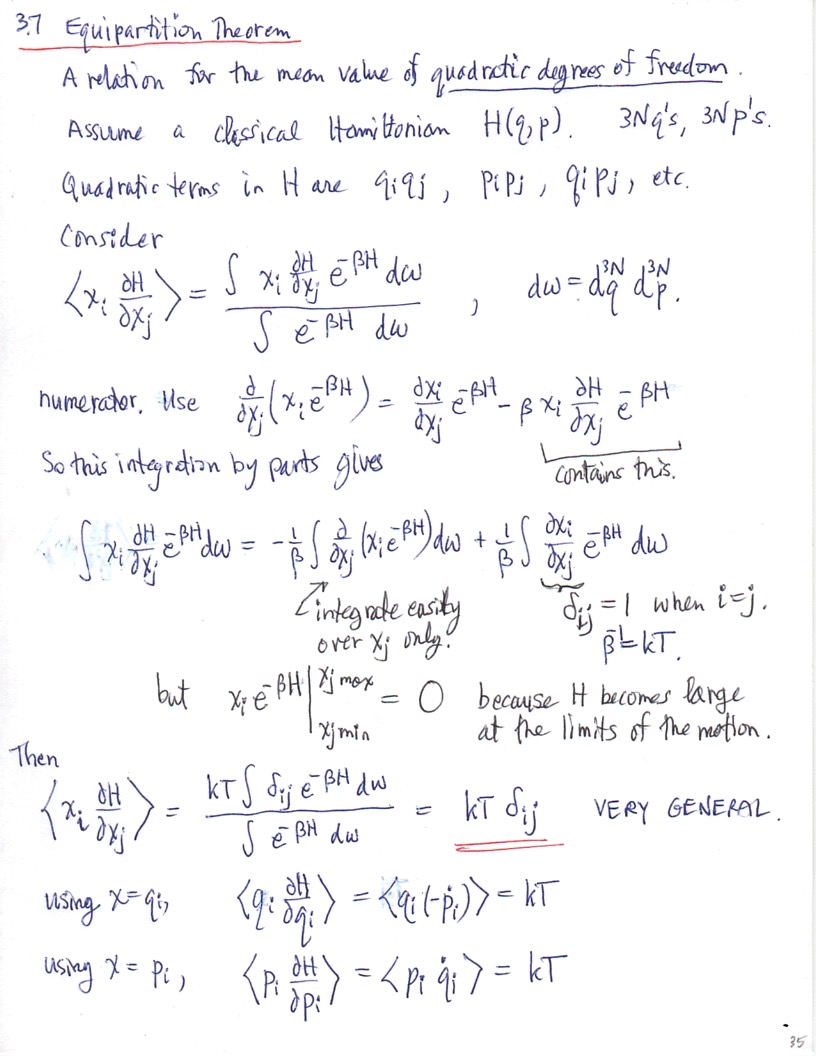 3.7 Equipartition Theorem
A relation for the mean value of quadratic degrees of freedom.
Assume a classical Hamiltonian H(q,p). 3N q's, 3N p's.
Quadratic terms in H are qᵢqⱼ, pᵢpⱼ, qᵢpⱼ, etc.
Consider
⟨xᵢ ∂H/∂xⱼ⟩ = ∫ xᵢ ∂H/∂xⱼ e^(-βH) dω / ∫ e^(-βH) dω , dω = d^(3N)q d^(3N)p.
numerator. Use ∂/∂xⱼ (xᵢ e^(-βH)) = ∂xᵢ/∂xⱼ e^(-βH) - β xᵢ ∂H/∂xⱼ e^(-βH)
So this integration by parts gives contains this.
∫ xᵢ ∂H/∂xⱼ e^(-βH) dω = -1/β ∫ ∂/∂xⱼ (xᵢ e^(-βH)) dω + 1/β ∫ ∂xᵢ/∂xⱼ e^(-βH) dω
integrate easily δᵢⱼ = 1 when i=j.
over xⱼ only. β⁻¹ = kT.
but xᵢ e^(-βH) | xⱼ max xⱼ min = 0 because H becomes large
at the limits of the motion.
Then
⟨xᵢ ∂H/∂xⱼ⟩ = kT ∫ δᵢⱼ e^(-βH) dω / ∫ e^(-βH) dω = kT δᵢⱼ VERY GENERAL.
using x = qᵢ, ⟨qᵢ ∂H/∂qᵢ⟩ = ⟨qᵢ (-ṗᵢ)⟩ = kT
using x = pᵢ, ⟨pᵢ ∂H/∂pᵢ⟩ = ⟨pᵢ q̇ᵢ⟩ = kT
35